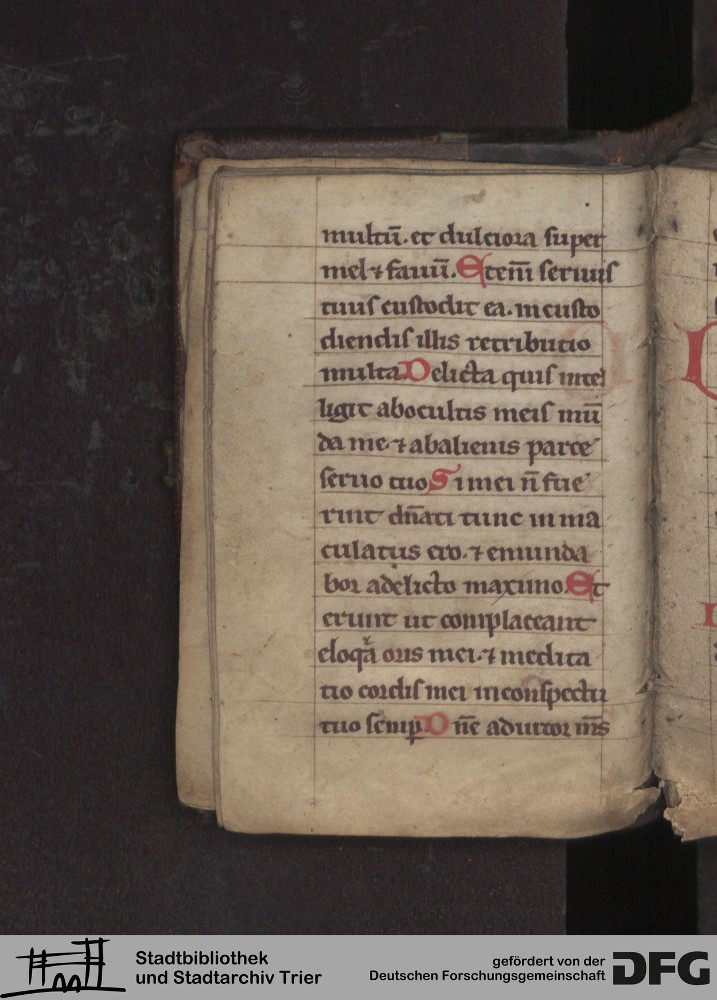 multū. et dulciora super
mel ⁊ fauū. Etenī seruus
tuus custodit ea. in custo
diendis illis retributio
multa Delicta quis intel
ligit abocultis meis mū
da me. ⁊ abalienis parce
seruo tuo Si mei n̄ fue
rint dn̄ati tunc inma
culatus ero. ⁊ emunda
bor adelicto maximo. Et
erunt ut complaceant
eloqͣ̄ oris mei. ⁊ medita
tio cordis mei inconspectu
tuo semp̱ Dn̄e adiutor m̄s
Stadtbibliothek
und Stadtarchiv Trier
gefördert von der
Deutschen Forschungsgemeinschaft
DFG